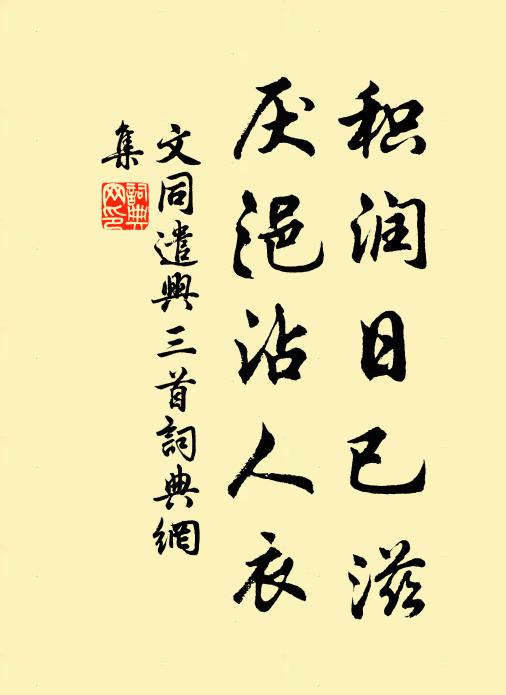 积润日已滋
厌浥沾人衣
文同遣興三首詞典網
集
詞典
网印